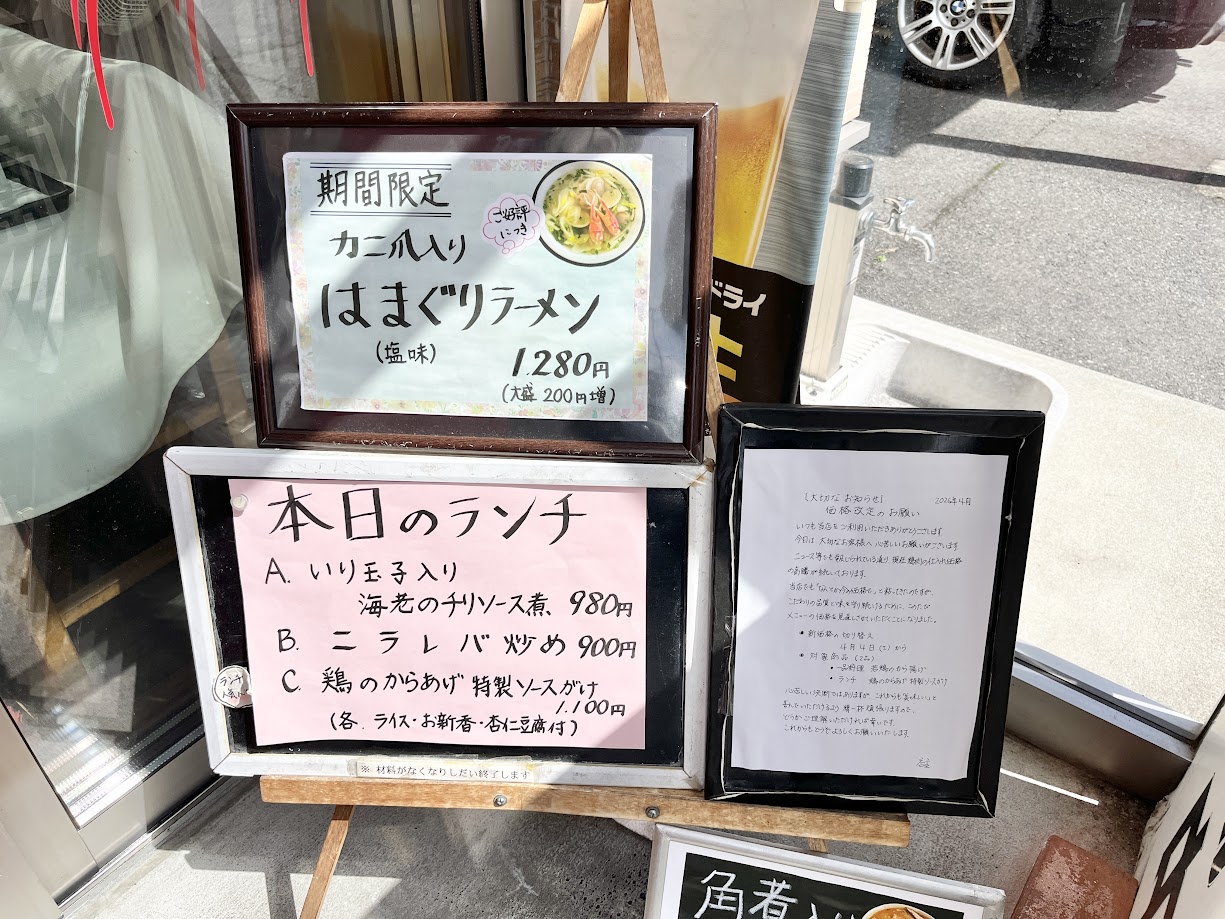 期間限定
ご好評
につき
カニ爪入り
はまぐりラーメン
(塩味)
1.280円
(大盛 200円増)
ドライ
本日のランチ
A. いり玉子入り
海老のチリソース煮 980円
B. ニラレバ炒め 900円
C. 鶏のからあげ 特製ソースがけ
1.100円
(各. ライス・お新香・杏仁豆腐付)
ランチ
※ 材料がなくなりしだい終了します
[大切なお知らせ] 2026年4月
価格改定のお願い
いつも当店をご利用いただきありがとうございます
今日は、大切なお客様へ心苦しいお願いがございます
ニュース等でも報じられている通り、現在 鶏肉の仕入れ価格
の高騰が続いております。
当店でも「なんとか今の価格で」と粘ってきたのですが、
こだわりの品質と味を守り続けるために、このたび
メニューの価格を見直しさせていただくことになりました。
• 新価格の切り替え
4月4日(土)から
• 対象商品 (2品)
• 一品料理 若鶏のから揚げ
• ランチ 鶏のからあげ 特製ソースがけ
心苦しい決断ではありますが、これからも「美味しい」と
喜んでいただけるよう 精一杯頑張りますので、
どうかご理解いただければ幸いです。
これからもどうぞよろしくお願いいたします。
店主
角煮入